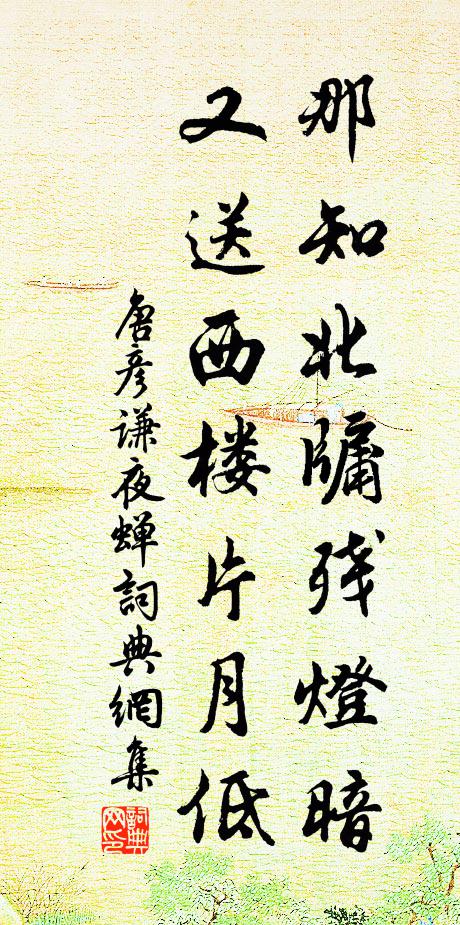 那知北牖残燈暗
又送西楼片月低
唐彦谦夜蝉詞典網集
詞典
网印